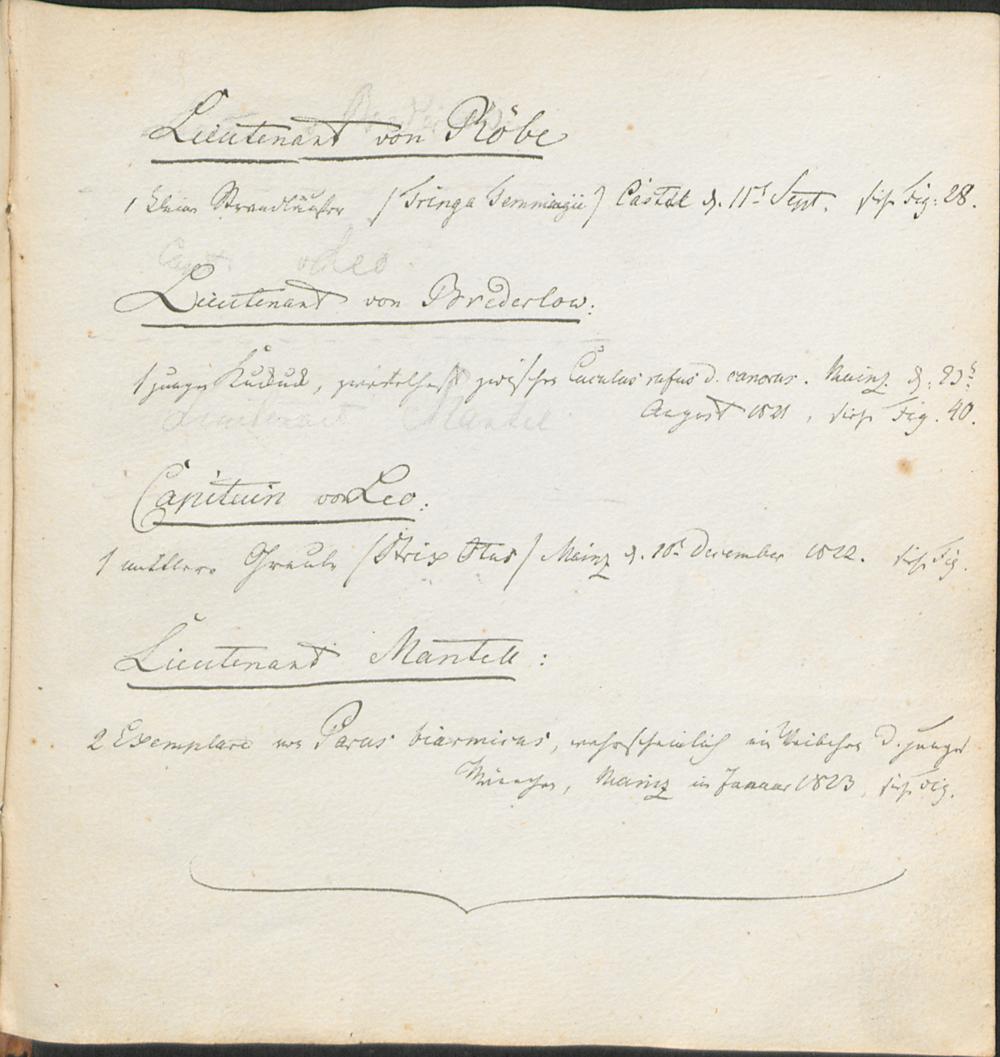 Lieutenant von Röbe
1 kleiner Strandläufer (Tringa Temminkii) Castel d. 11t Sept. siehe Fig: 28.
Capt. v Leo
Lieutenant von Brederlow:
1 junger Kukuk, zweifelhaft zwischen Cuculus rufus u. canorus. Mainz d. 23t
August 1821, siehe Fig. 40.
Lieutenant Mantel
Capitain von Leo:
1 mittlere Ohreule (Strix Otus) Mainz d. 10t December 1822. siehe Fig.
Lieutenant Mantell:
2 Exemplare von Parus biarmicus, wahrscheinlich ein Weibchen u. junges
Männchen, Mainz im Januar 1823, siehe Fig.